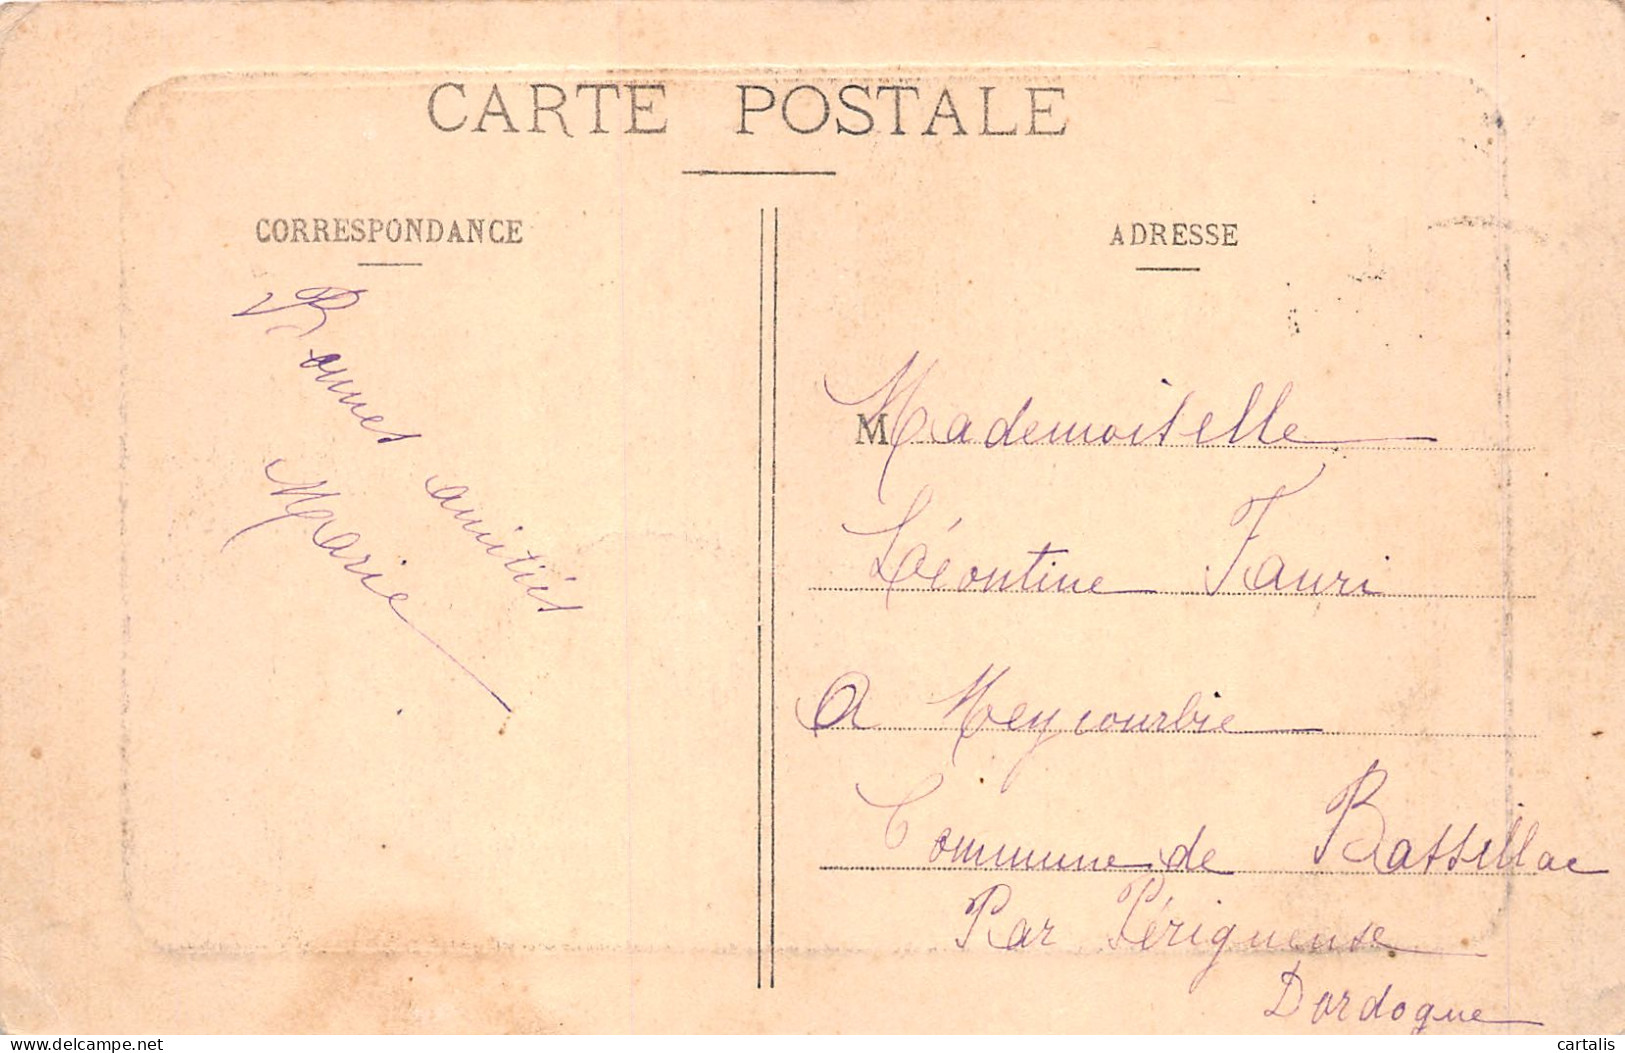 CARTE POSTALE
CORRESPONDANCE
Bonnes amitiés
Marie
ADRESSE
M Mademoiselle
Léontine Fauri
A Meycourbie
Commune de Bassillac
Par Périgueuse
Dordogne
cartalis
delcampe.net